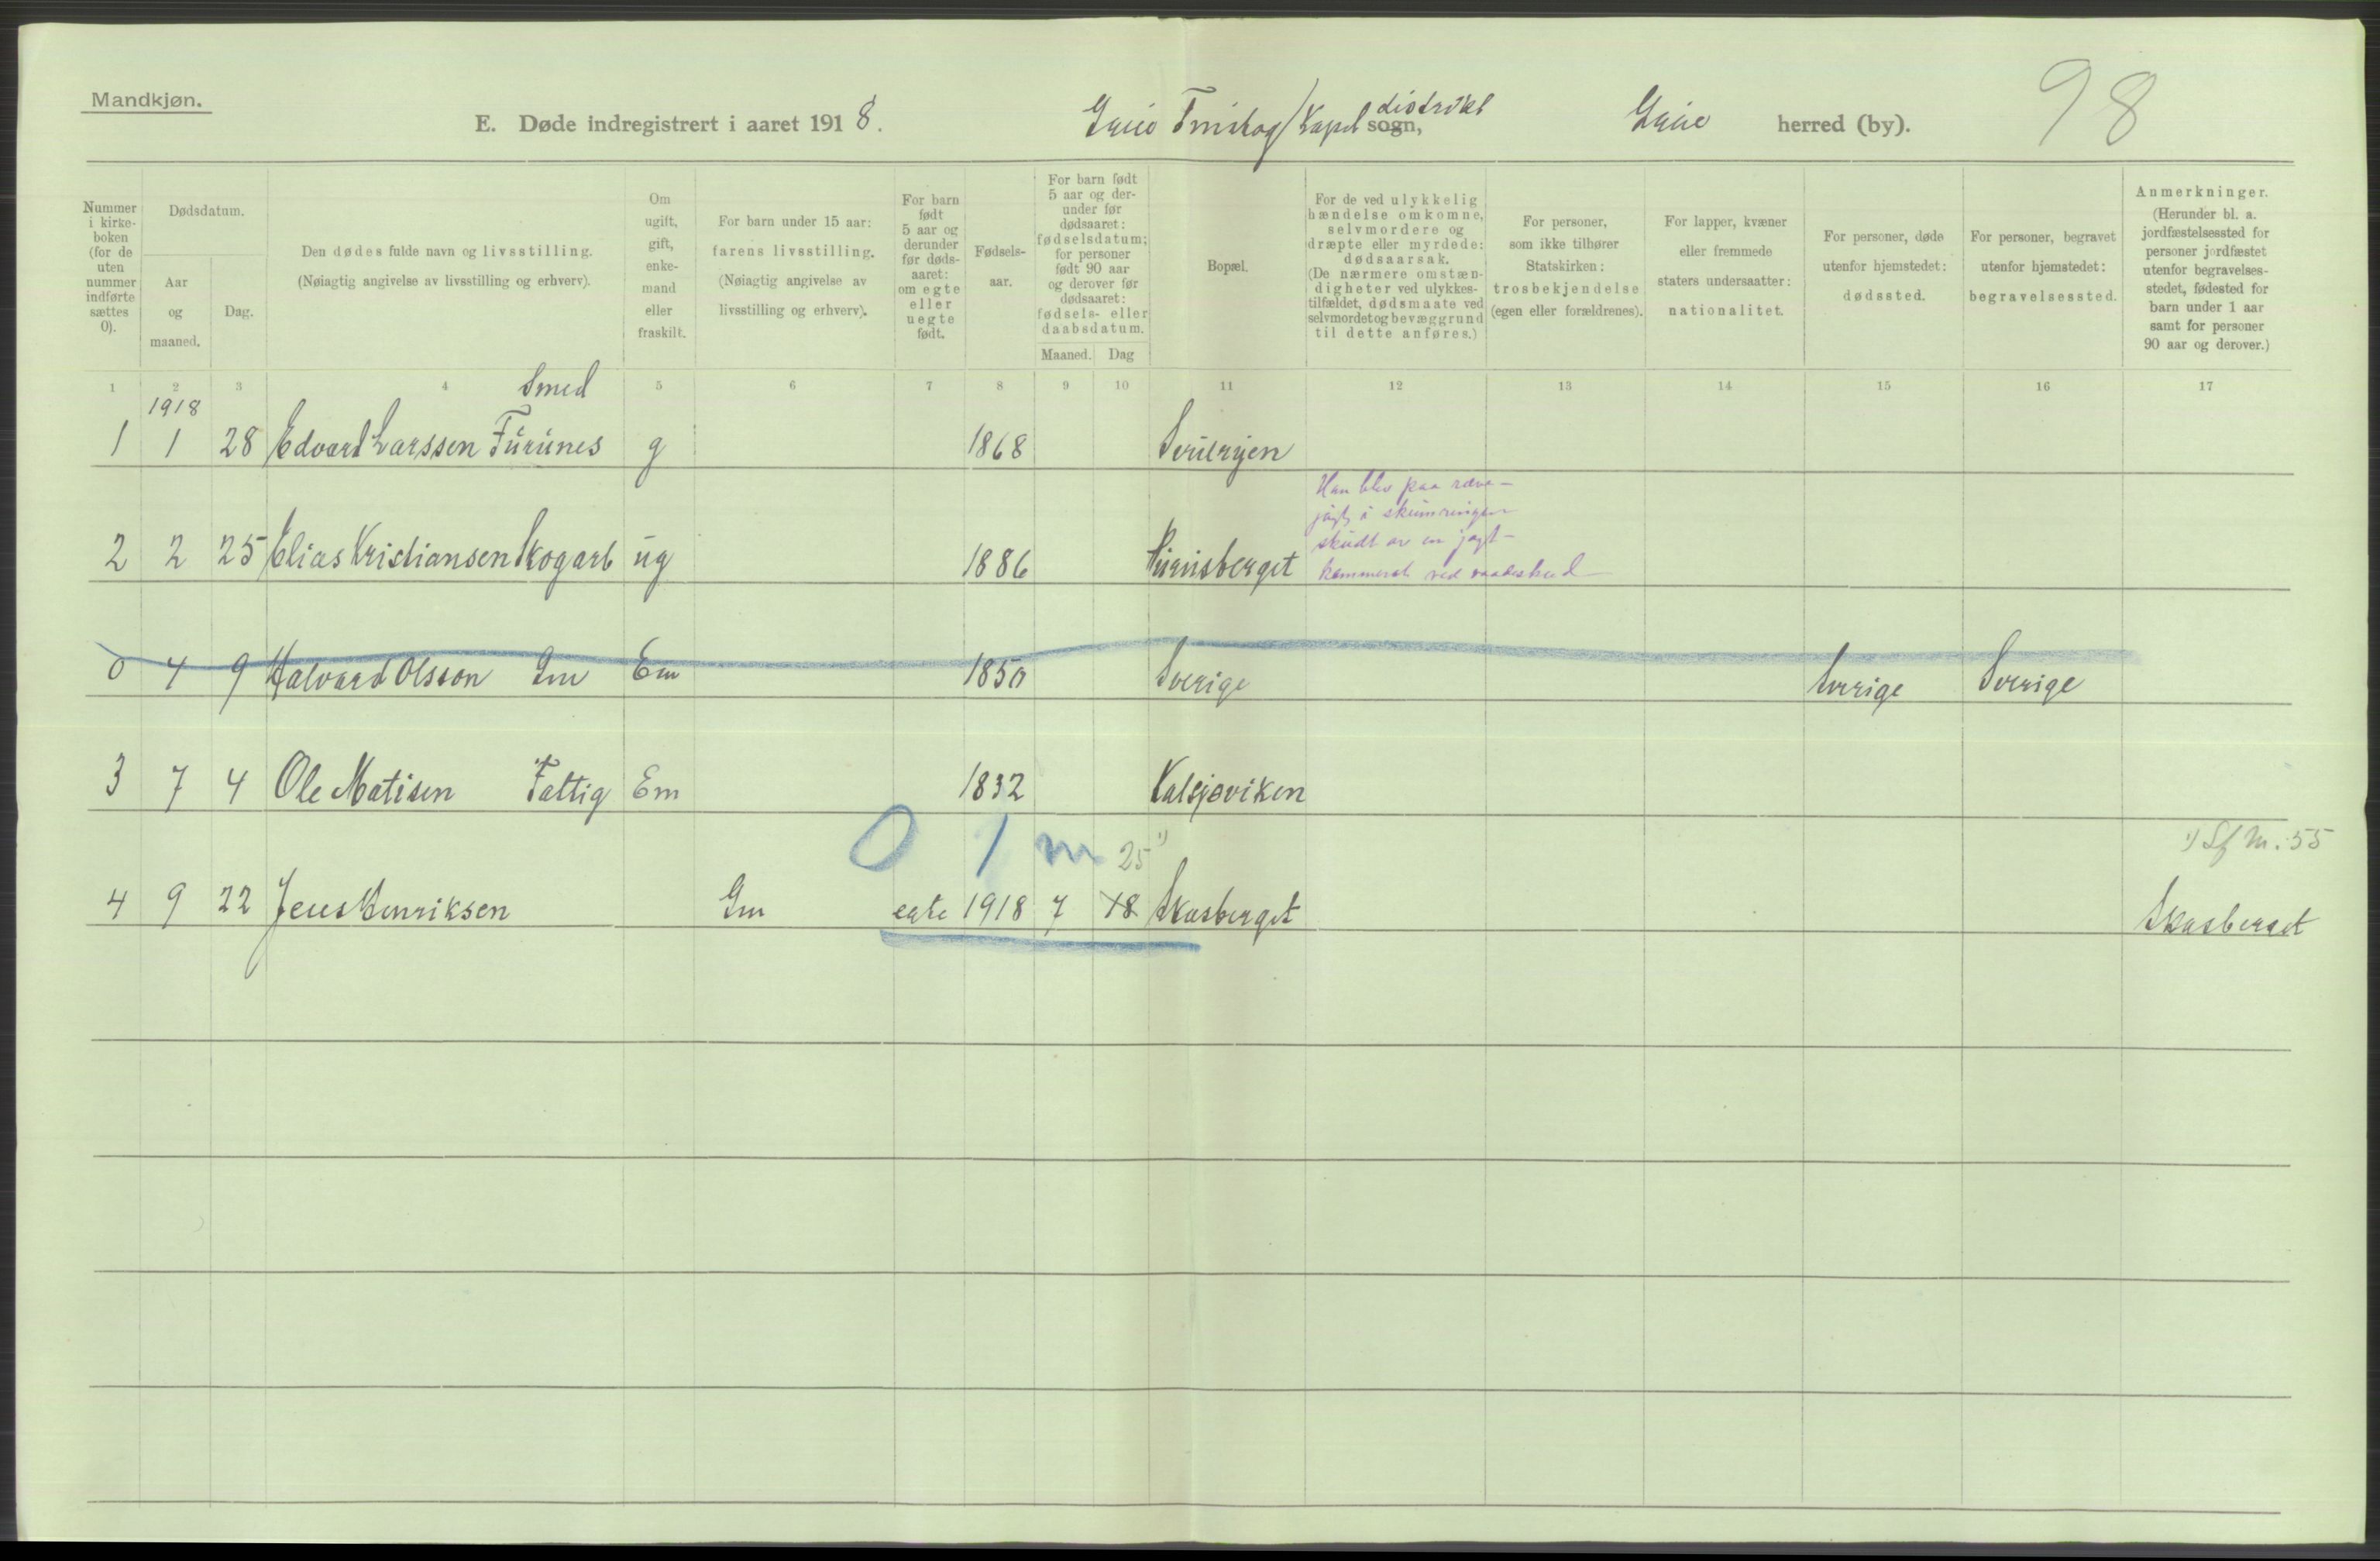 Mandkjøn.
E. Døde indregistrert i aaret 1918. Grue Finskog Kapel distrikt sogn, Grue herred (by). 98
Nummer i kirke-boken (for de uten nummer indførte sættes 0).
Dødsdatum.
Aar og maaned.
Dag.
Den dødes fulde navn og livsstilling.
(Nøiagtig angivelse av livsstilling og erhverv).
Om ugift, gift, enke-mand eller fraskilt.
For barn under 15 aar:
farens livsstilling.
(Nøiagtig angivelse av livsstilling og erhverv).
For barn født 5 aar og derunder før døds-aaret: om egte eller uegte født.
Fødsels-aar.
For barn født 5 aar og der-under før dødsaaret: fødselsdatum; for personer født 90 aar og derover før dødsaaret: fødsels- eller daabsdatum.
Maaned. Dag
Bopæl.
For de ved ulykkelig hændelse omkomne, selvmordere og dræpte eller myrdede: dødsaarsak.
(De nærmere omstæn-digheter ved ulykkes-tilfældet, dødsmaate ved selvmordet og bevæggrund til dette anføres.)
For personer, som ikke tilhører Statskirken: trosbekjendelse (egen eller forældrenes).
For lapper, kvæner eller fremmede staters undersaatter: nationalitet.
For personer, døde utenfor hjemstedet: dødssted.
For personer, begravet utenfor hjemstedet: begravelsessted.
Anmerkninger.
(Herunder bl. a. jordfæstelsessted for personer jordfæstet utenfor begravelses-stedet, fødested for barn under 1 aar samt for personer 90 aar og derover.)
1 2 3 4 5 6 7 8 9 10 11 12 13 14 15 16 17
1918 Smed
1 1 28 Edvard Larssen Furunes g 1868
Han blev paa ræve-
jagt i skumringen
skudt av en jagt-
kammerat ved vaadeskud
2 2 25 Elias Kristiansen Skogarb ug 1886 Purnisberget
0 4 9 Halvard Olsson Gm Em 1850 Sverige Sverige Sverige
3 7 4 Ole Matisen Fattig Em 1832 Kalsjøviken
0 1 m 25 1) 1) Sf M. 55
4 9 22 Jens Henriksen Gm egte 1918 7 18 Skasberget Skasberget